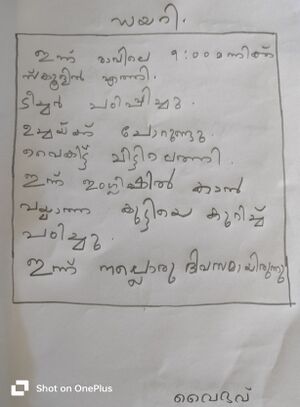 ഡയറി.
ഇന്ന് രാവിലെ 9:00 മണിക്ക്
സ്കൂളിൽ എത്തി.
ടീച്ചർ പഠിപ്പിച്ചു.
ഉച്ചയ്ക്ക് ചോറുണ്ടു.
വൈകിട്ട് വീട്ടിലെത്തി.
ഇന്ന് ഇംഗ്ലീഷിൽ കാൻ
വയ്യാത്ത കുട്ടിയെ കുറിച്ച്
പഠിച്ചു.
ഇന്ന് നല്ലൊരു ദിവസമായിരുന്നു
Shot on OnePlus
വൈദവ്